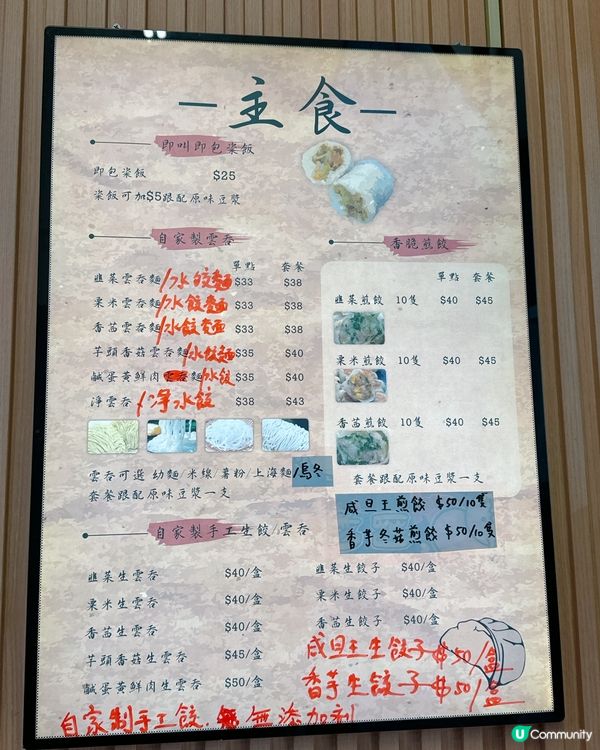 主食
即叫即包粢飯
即包粢飯 $25
粢飯可加$5跟配原味豆漿
自家製雲吞
單點 套餐
韮菜雲吞麵/水餃麵 $33 $38
粟米雲吞麵/水餃麵 $33 $38
香茴雲吞麵/水餃麵 $33 $38
芋頭香菇雲吞麵/水餃麵 $35 $40
鹹蛋黃鮮肉雲吞麵/水餃 $35 $40
淨雲吞/淨水餃 $38 $43
雲吞可選 幼麵/米線/薯粉/上海麵/烏冬
套餐跟配原味豆漿一支
香脆煎餃
單點 套餐
韮菜煎餃 10隻 $40 $45
粟米煎餃 10隻 $40 $45
香茴煎餃 10隻 $40 $45
套餐跟配原味豆漿一支
咸旦王煎餃 $50/10隻
香芋冬菇煎餃 $50/10隻
自家製手工生餃/雲吞
韮菜生雲吞 $40/盒
粟米生雲吞 $40/盒
香茴生雲吞 $40/盒
芋頭香菇生雲吞 $45/盒
鹹蛋黃鮮肉生雲吞 $50/盒
韮菜生餃子 $40/盒
粟米生餃子 $40/盒
香茴生餃子 $40/盒
咸旦王生餃子 $50/盒
香芋生餃子 $50/盒
自家制手工餃、無添加剂
U Community